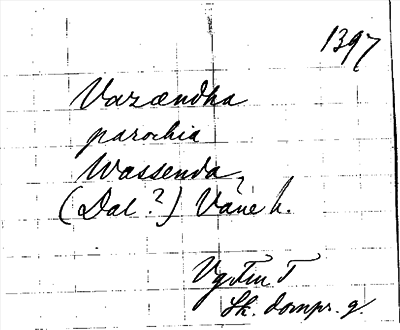 1397
Vazændha
parochia
Wassenda,
(Dal.?) Väne h.
Vgötln T
Sk. dompr. g.